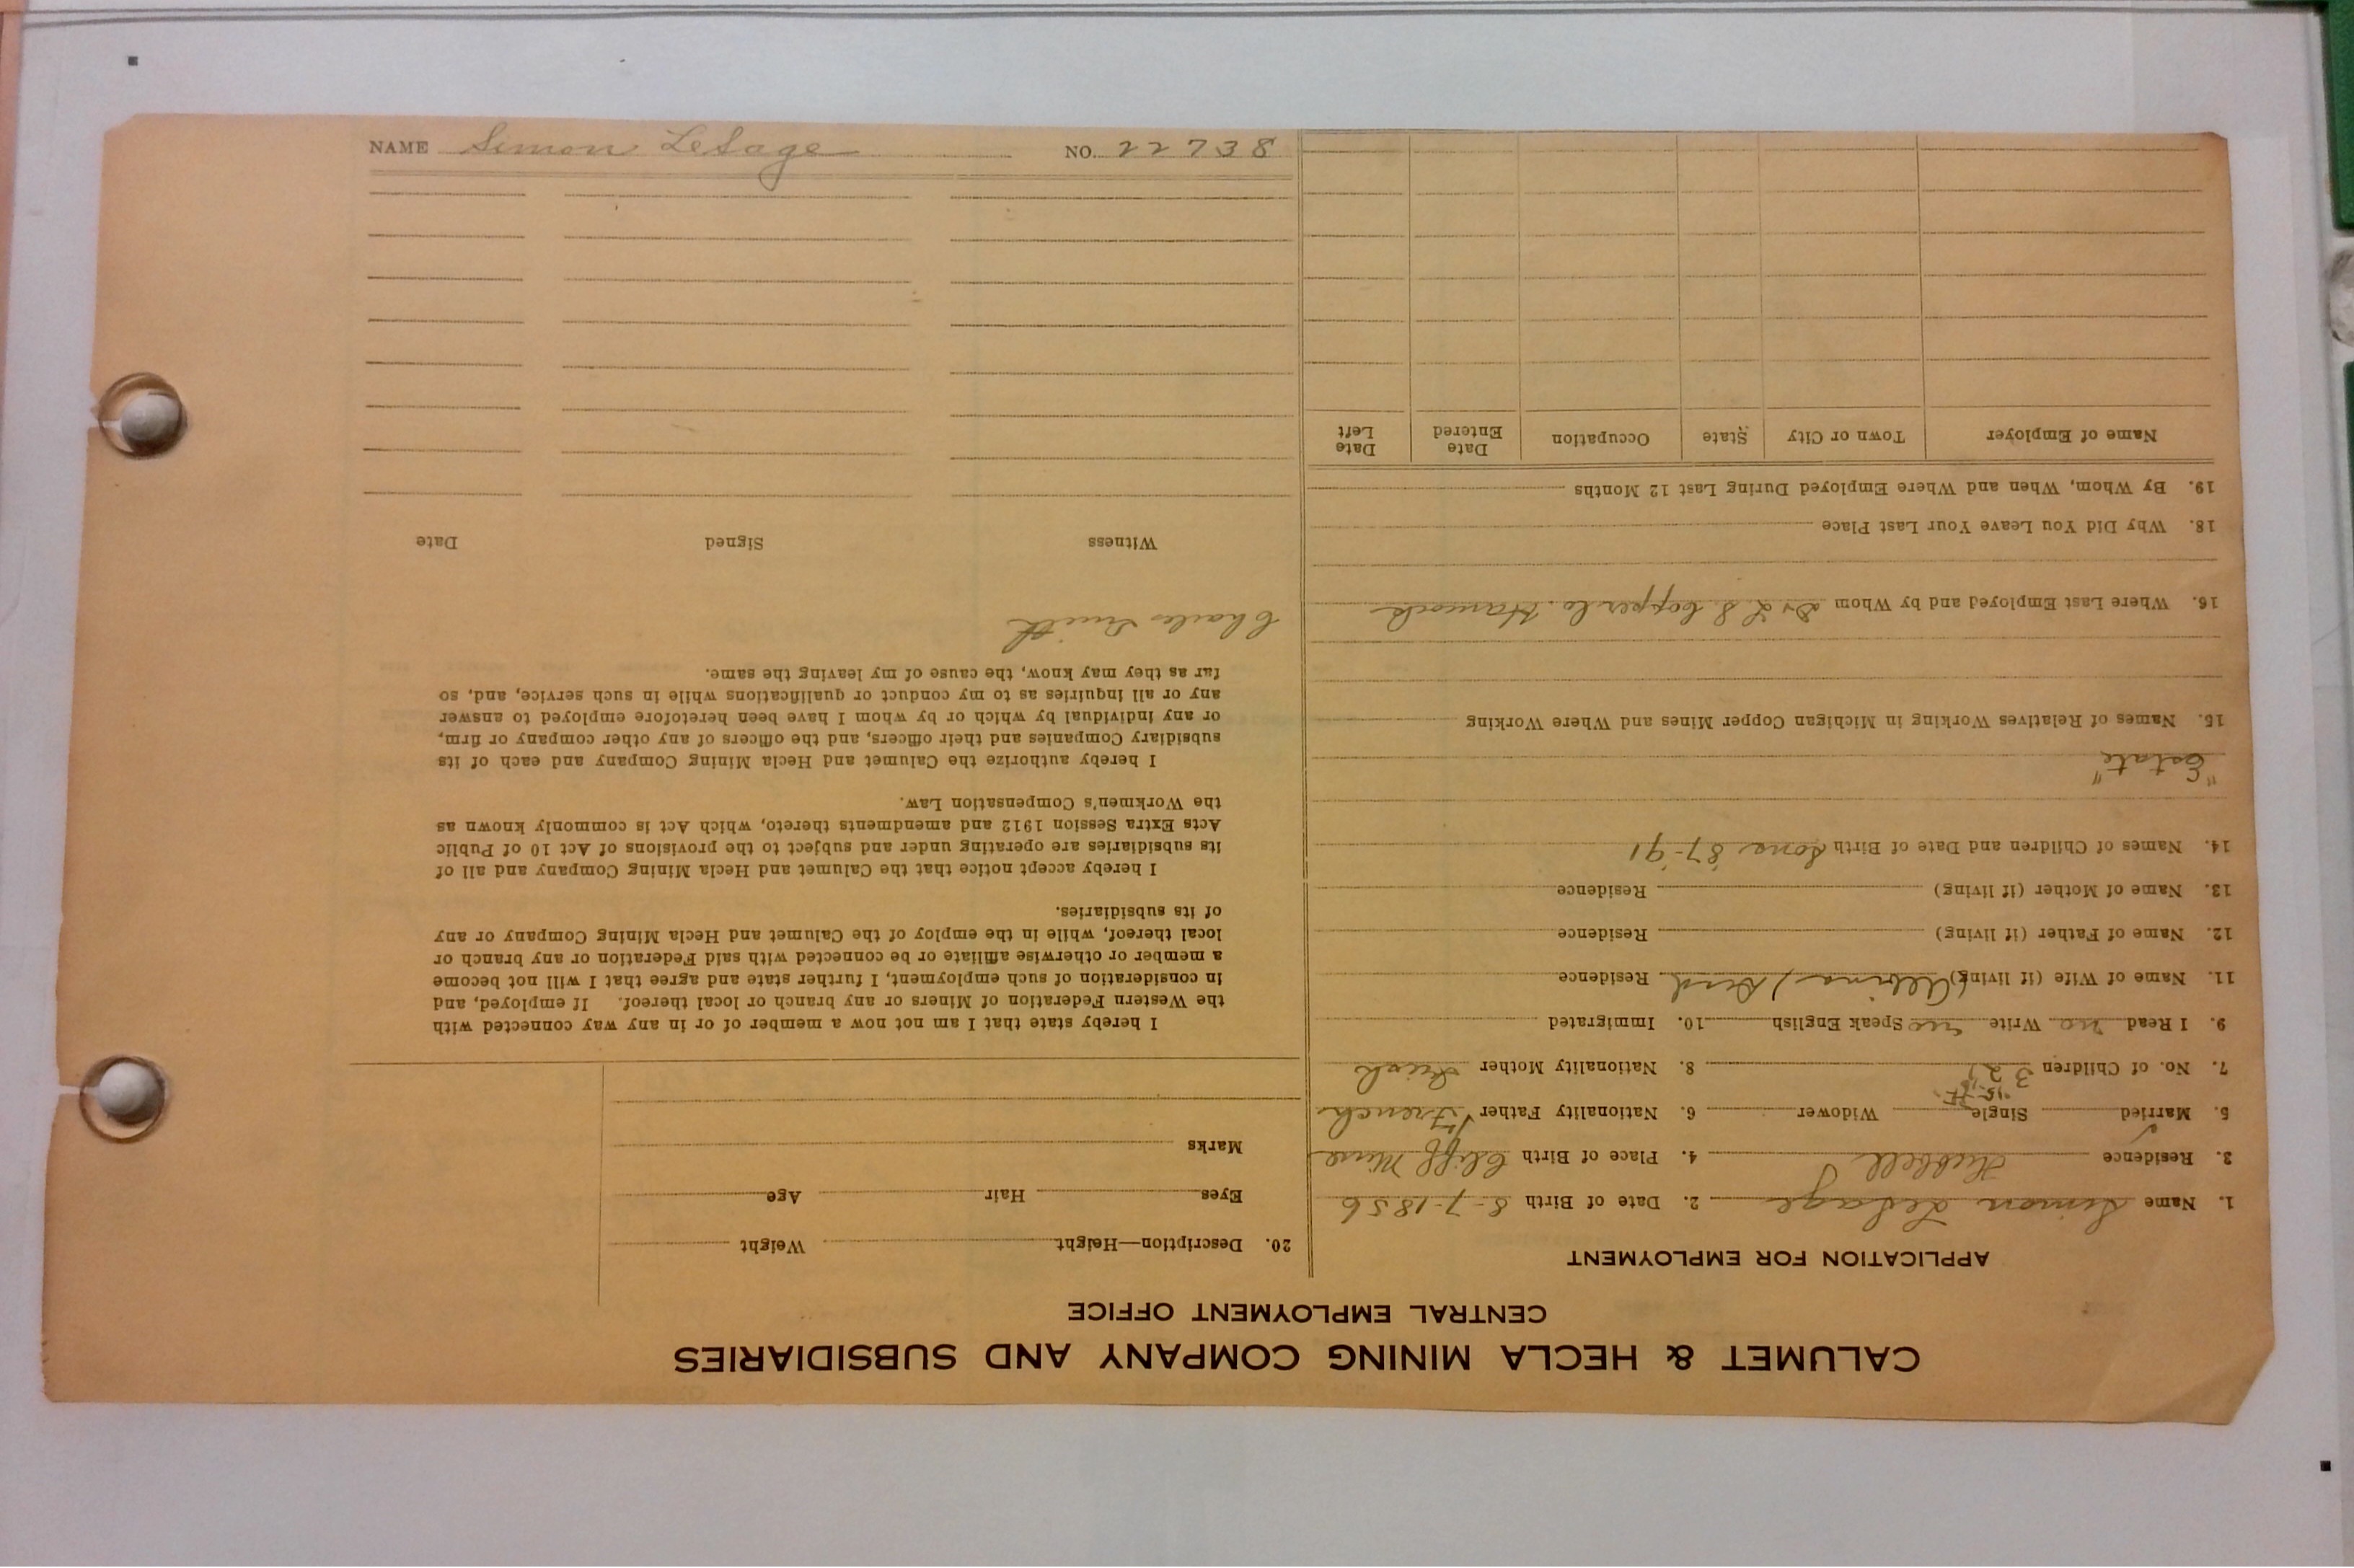 NAME Simon LeSage NO. 22738
CALUMET & HECLA MINING COMPANY AND SUBSIDIARIES
CENTRAL EMPLOYMENT OFFICE
APPLICATION FOR EMPLOYMENT
1. Name Simon LeSage 2. Date of Birth 8-7-1856
3. Residence Hubbell 4. Place of Birth Cliff Mine
5. Married Single Widower 6. Nationality Father French
7. No. of Children 3 8. Nationality Mother Irish
9. I Read no Write no Speak English 10. Immigrated
11. Name of Wife (if living) (Albina) Dead Residence
12. Name of Father (if living) Residence
13. Name of Mother (if living) Residence
14. Names of Children and Date of Birth Sons 87-91
"Estate"
15. Names of Relatives Working in Michigan Copper Mines and Where Working
16. Where Last Employed and by Whom D & L S Copper Co. Hancock
18. Why Did You Leave Your Last Place
19. By Whom, When and Where Employed During Last 12 Months
Name of Employer Town or City State Occupation Date Entered Date Left
20. Description—Height Weight
Eyes Hair Age
Marks
I hereby state that I am not now a member of or in any way connected with
the Western Federation of Miners or any branch or local thereof. If employed, and
in consideration of such employment, I further state and agree that I will not become
a member or otherwise affiliate or be connected with said Federation or any branch or
local thereof, while in the employ of the Calumet and Hecla Mining Company or any
of its subsidiaries.
I hereby accept notice that the Calumet and Hecla Mining Company and all of
its subsidiaries are operating under and subject to the provisions of Act 10 of Public
Acts Extra Session 1912 and amendments thereto, which Act is commonly known as
the Workmen's Compensation Law.
I hereby authorize the Calumet and Hecla Mining Company and each of its
subsidiary Companies and their officers, and the officers of any other company or firm,
or any individual by which or by whom I have been heretofore employed to answer
any or all inquiries as to my conduct or qualifications while in such service, and, so
far as they may know, the cause of my leaving the same.
Charles Smith
Witness Signed Date